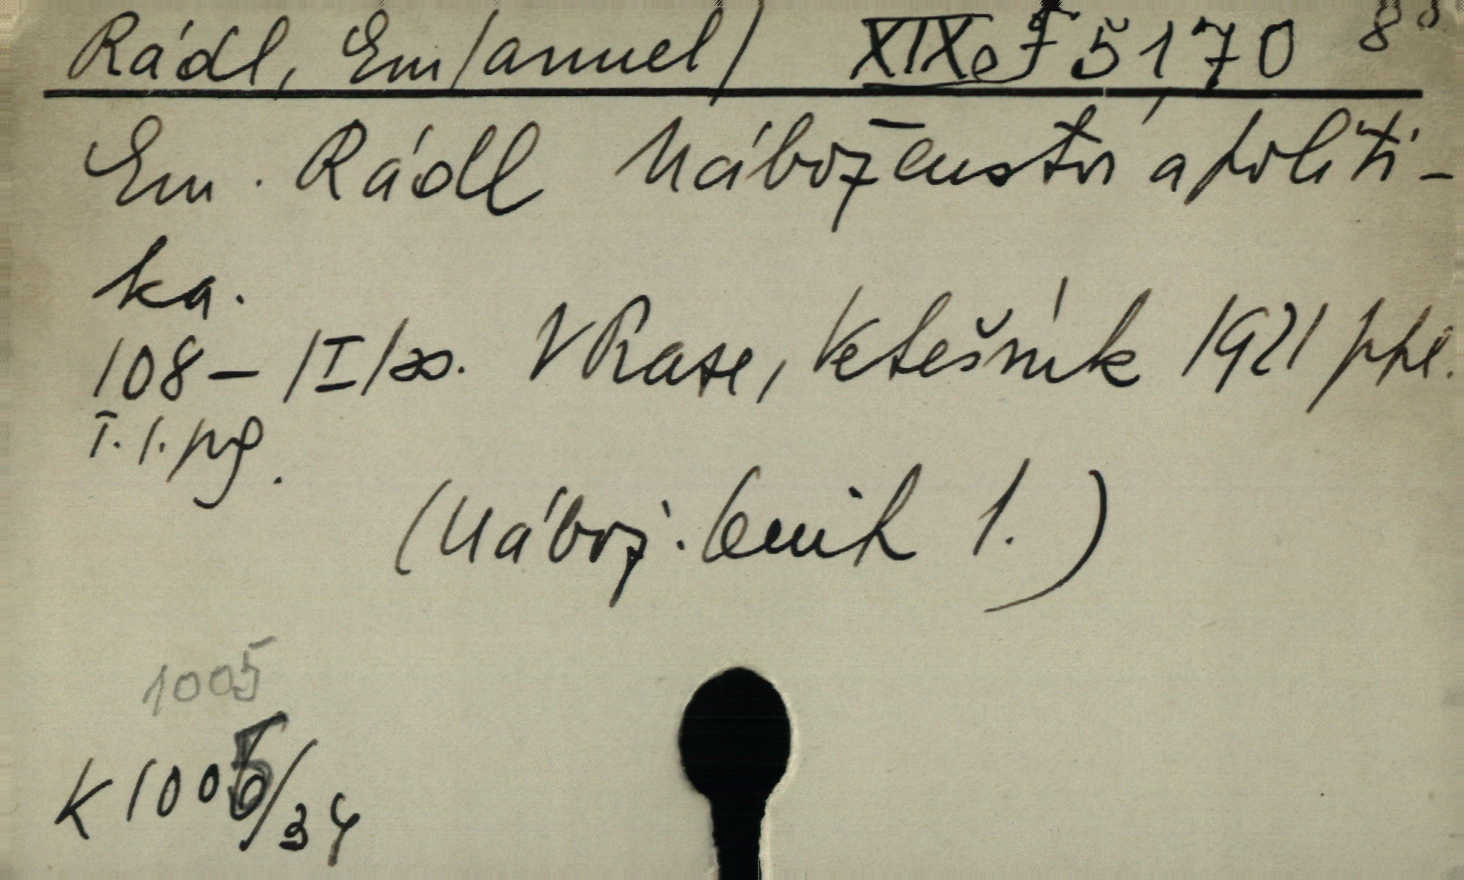 Rádl, Em/anuel/ XIXe F 5170 8°
Em. Rádl Náboženství a politi-
ka.
108 - /I/ s. V Praze, Vetešník 1921
I. 1.
(Nábož. 1.)
1005
K 1005/34